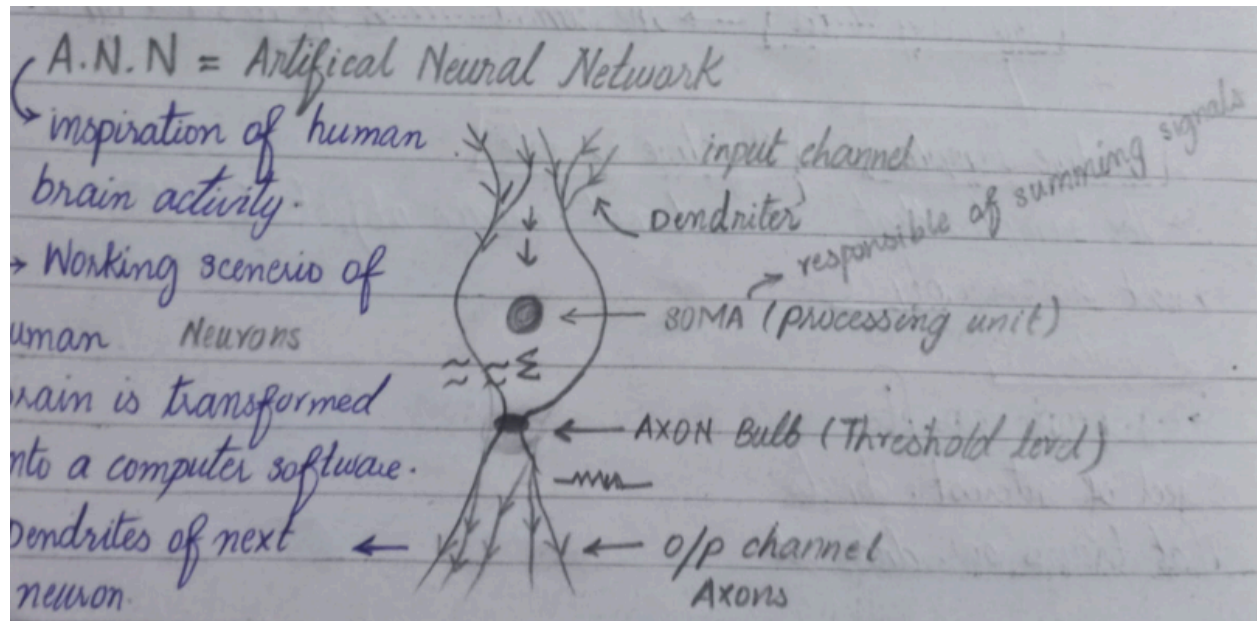 A.N.N = Artifical Neural Network
inspiration of human
brain activity.
→ Working scenerio of
uman Neurons
rain is transformed
nto a computer software.
Dendrites of next
neuron.
input channel
Dendriter
responsible of summing signals
SOMA (processing unit)
Σ
AXON Bulb (Threshold level)
o/p channel
Axons